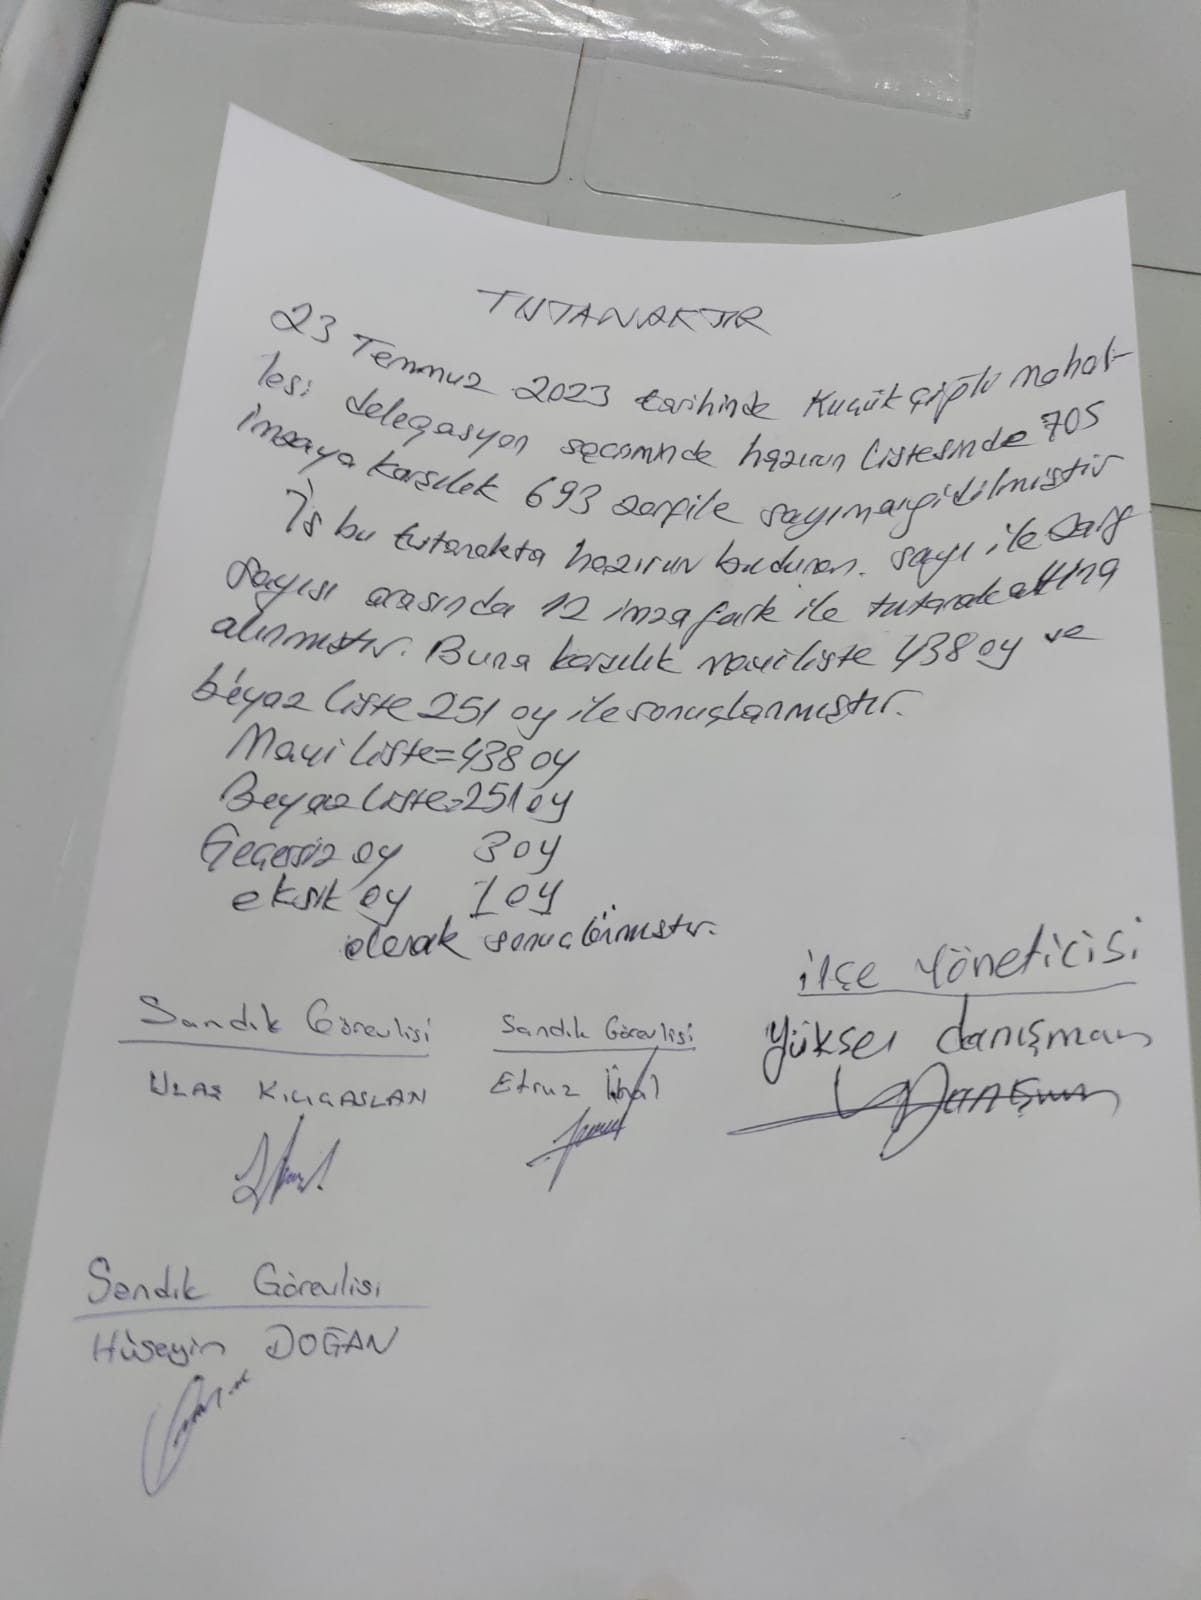 TUTANAKTIR
23 Temmuz 2023 tarihinde Küçükçiğli mahal-
lesi delegasyon seçiminde hazırun listesinde 705
imzaya karşılık 693 zarf ile sayıma gidilmiştir
İş bu tutanakta hazirun bulunan sayı ile zarf
sayısı arasında 12 imza fark ile tutanak altına
alınmıştır. Buna karşılık mavi liste 438 oy ve
beyaz liste 251 oy ile sonuçlanmıştır.
Mavi liste=438 oy
Beyaz liste=251 oy
Geçersiz oy 3 oy
eksik oy 1 oy
olarak
ilçe Yöneticisi
Sandık Görevlisi Sandık Görevlisi Yüksel danışman
ULAŞ KILIÇASLAN Ünal
Sandık Görevlisi
Hüseyin DOĞAN